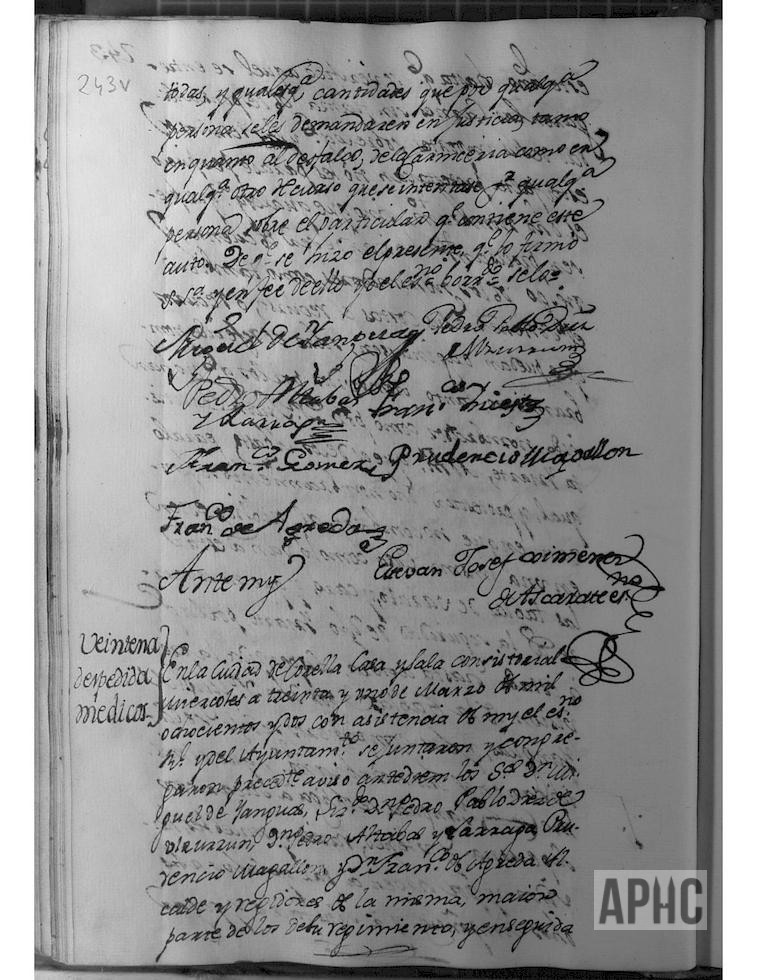 243v
todas, y qualesq.a cantidades que por qualq.a
persona se les demandaren en Justicia, tanto
en quanto al desfalco, de la Carniceria como en
qualq.a otro recurso que se intentase p.r qualq.a
persona sobre el particular q.e contiene este
auto. De q.e se hizo el presente, q.e lo firmó
s.s.a y en fee de ello yo el es.no
Miguel de Yanguas Pedro Pablo Diez
Ulzurrun
Pedro Attabas
y Larraga Fran.co
Fran.co Gomez, Prudencio Magallon
Fran.co de Agreda
Antemy Estevan Josef Ximenez
de Ascarate es.no
Veintena
despedida
medicos
En la Ciudad de Corella Casa y Sala consistorial
miercoles a treinta y uno de Marzo de mil
ochocientos y dos con asistencia de my el es.no
R.l y del Ayuntam.to se juntaron y congre-
garon precedte aviso antediem los S.res D.n Mi-
guel de Yanguas, D.n Pedro Pablo Diez de
Ulzurrun, D.n Pedro Attabas y Larraga, Pru-
dencio Magallon, y D.n Fran.co de Agreda Al-
calde y regidores de la misma, maior
parte de los de su regimiento, y en seguida
APHC